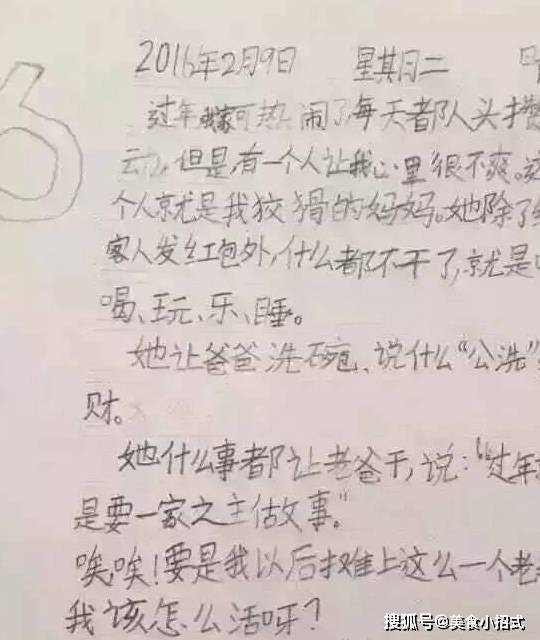 2016年2月9日 星期二
过年我家可热闹了每天都队头攒
动,但是,有一个人让我心里很不爽。这
个人就是我狡猾的妈妈。她除了给
客人发红包外,什么都不干了,就是吃
喝、玩、乐、睡。
她让爸爸洗碗、说什么“公洗”
财。
她什么事都让老爸干,说:“过年
是要一家之主做故事。”
唉,唉!要是我以后摊上这么一个老
我该怎么活呀?
搜狐号@美食小招式